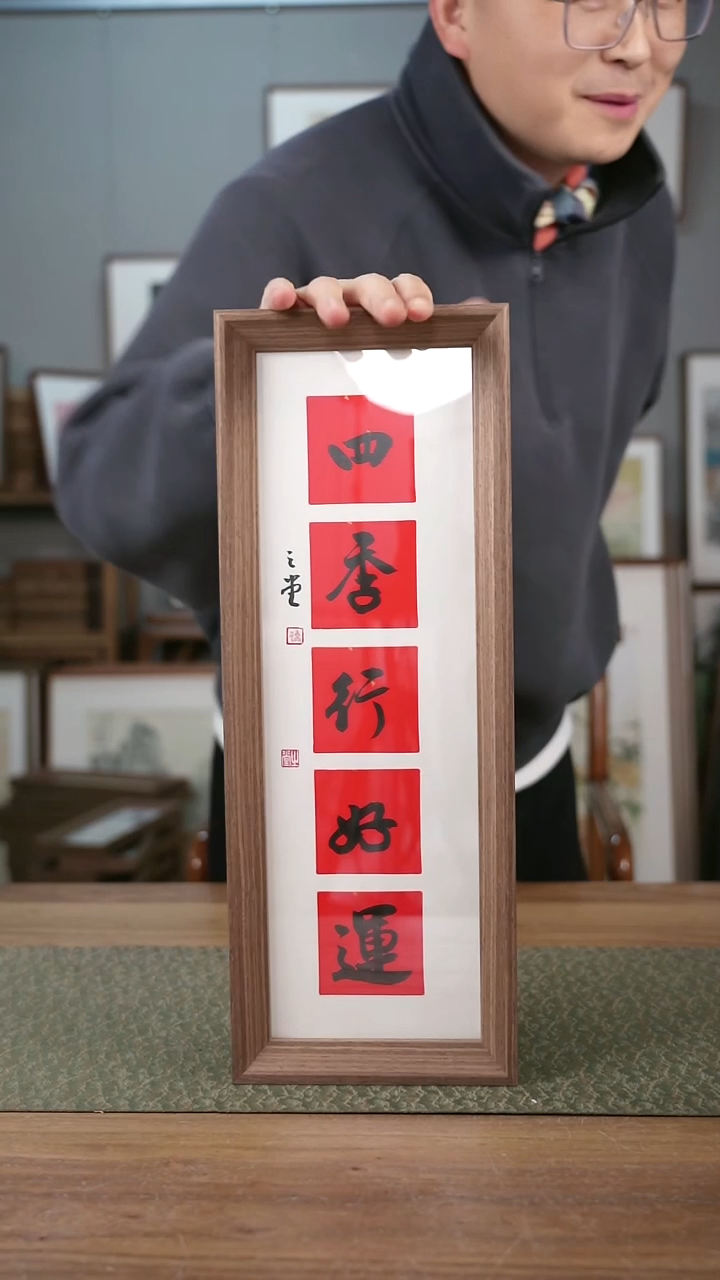 四季行好運
之堂